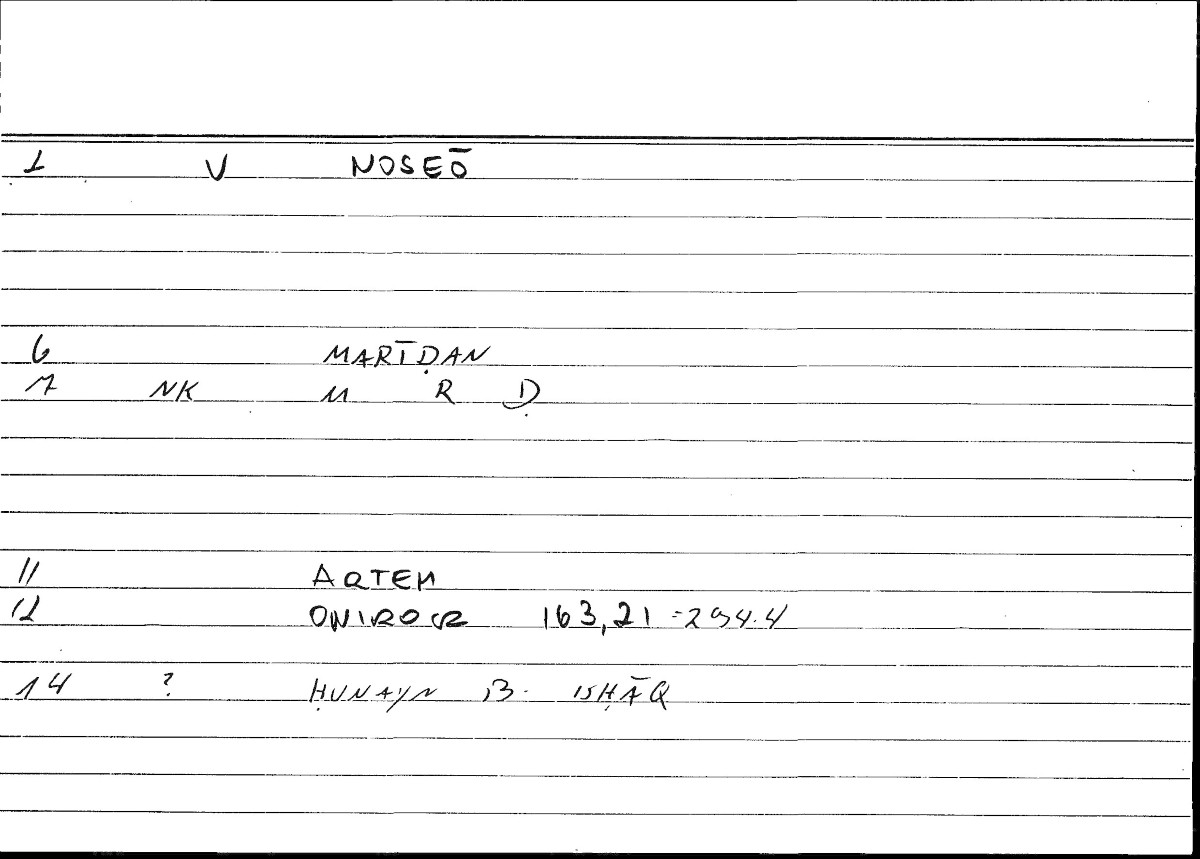 1 V NOSEŌ
6 MARĪḌAN
7 NK M R Ḍ
11 ARTEM
12 ONIROCR 163,21 = 294.4
14 ? ḤUNAYN B. ISḤĀQ